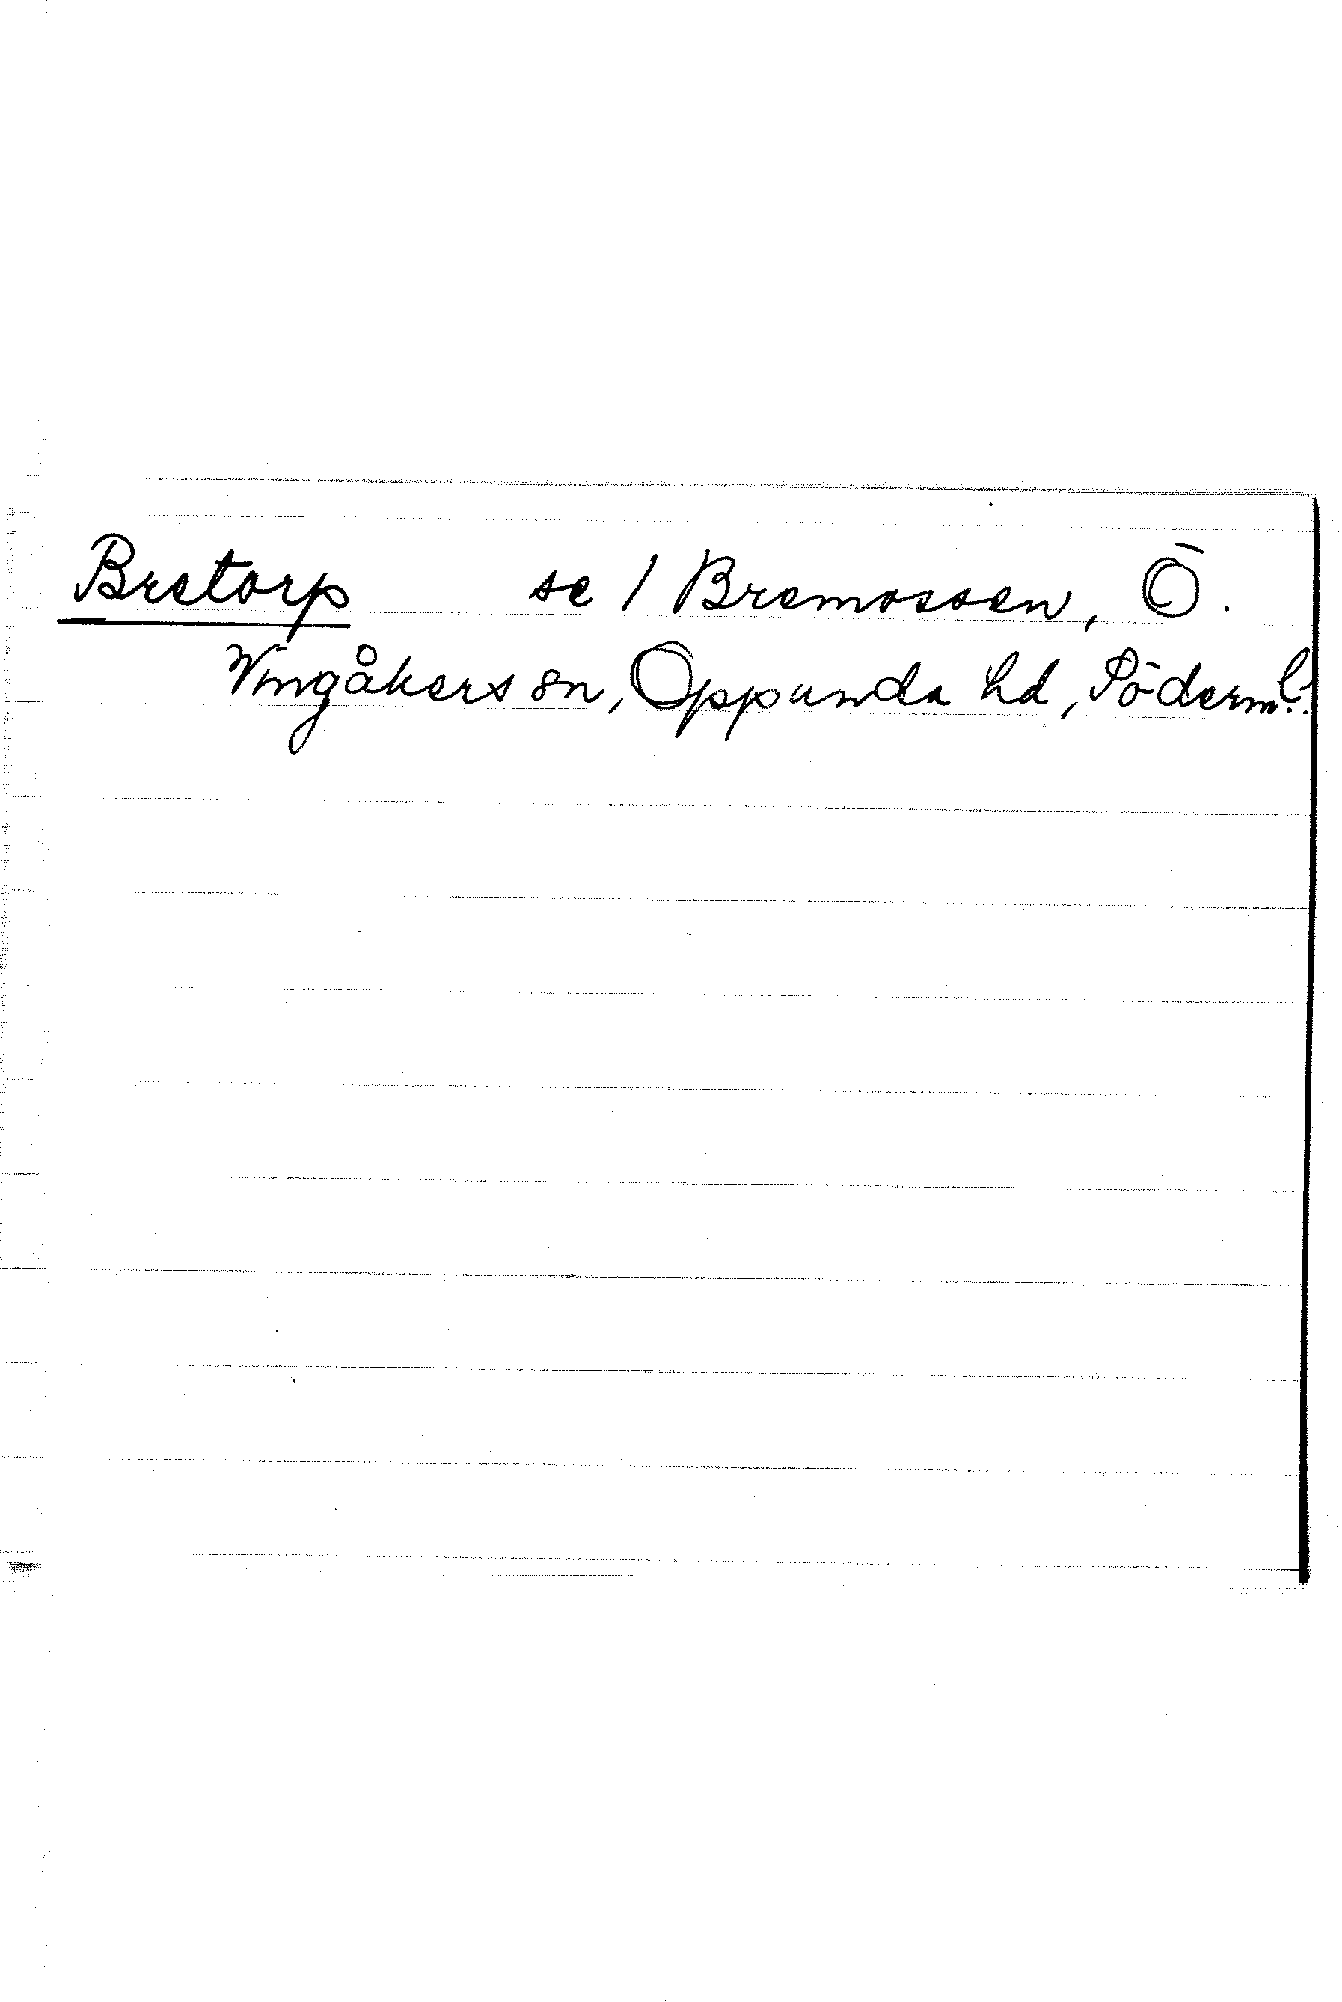 Bretorp se / Bremossen, Ö.
Vingåkers sn, Oppunda hd, Söderml.